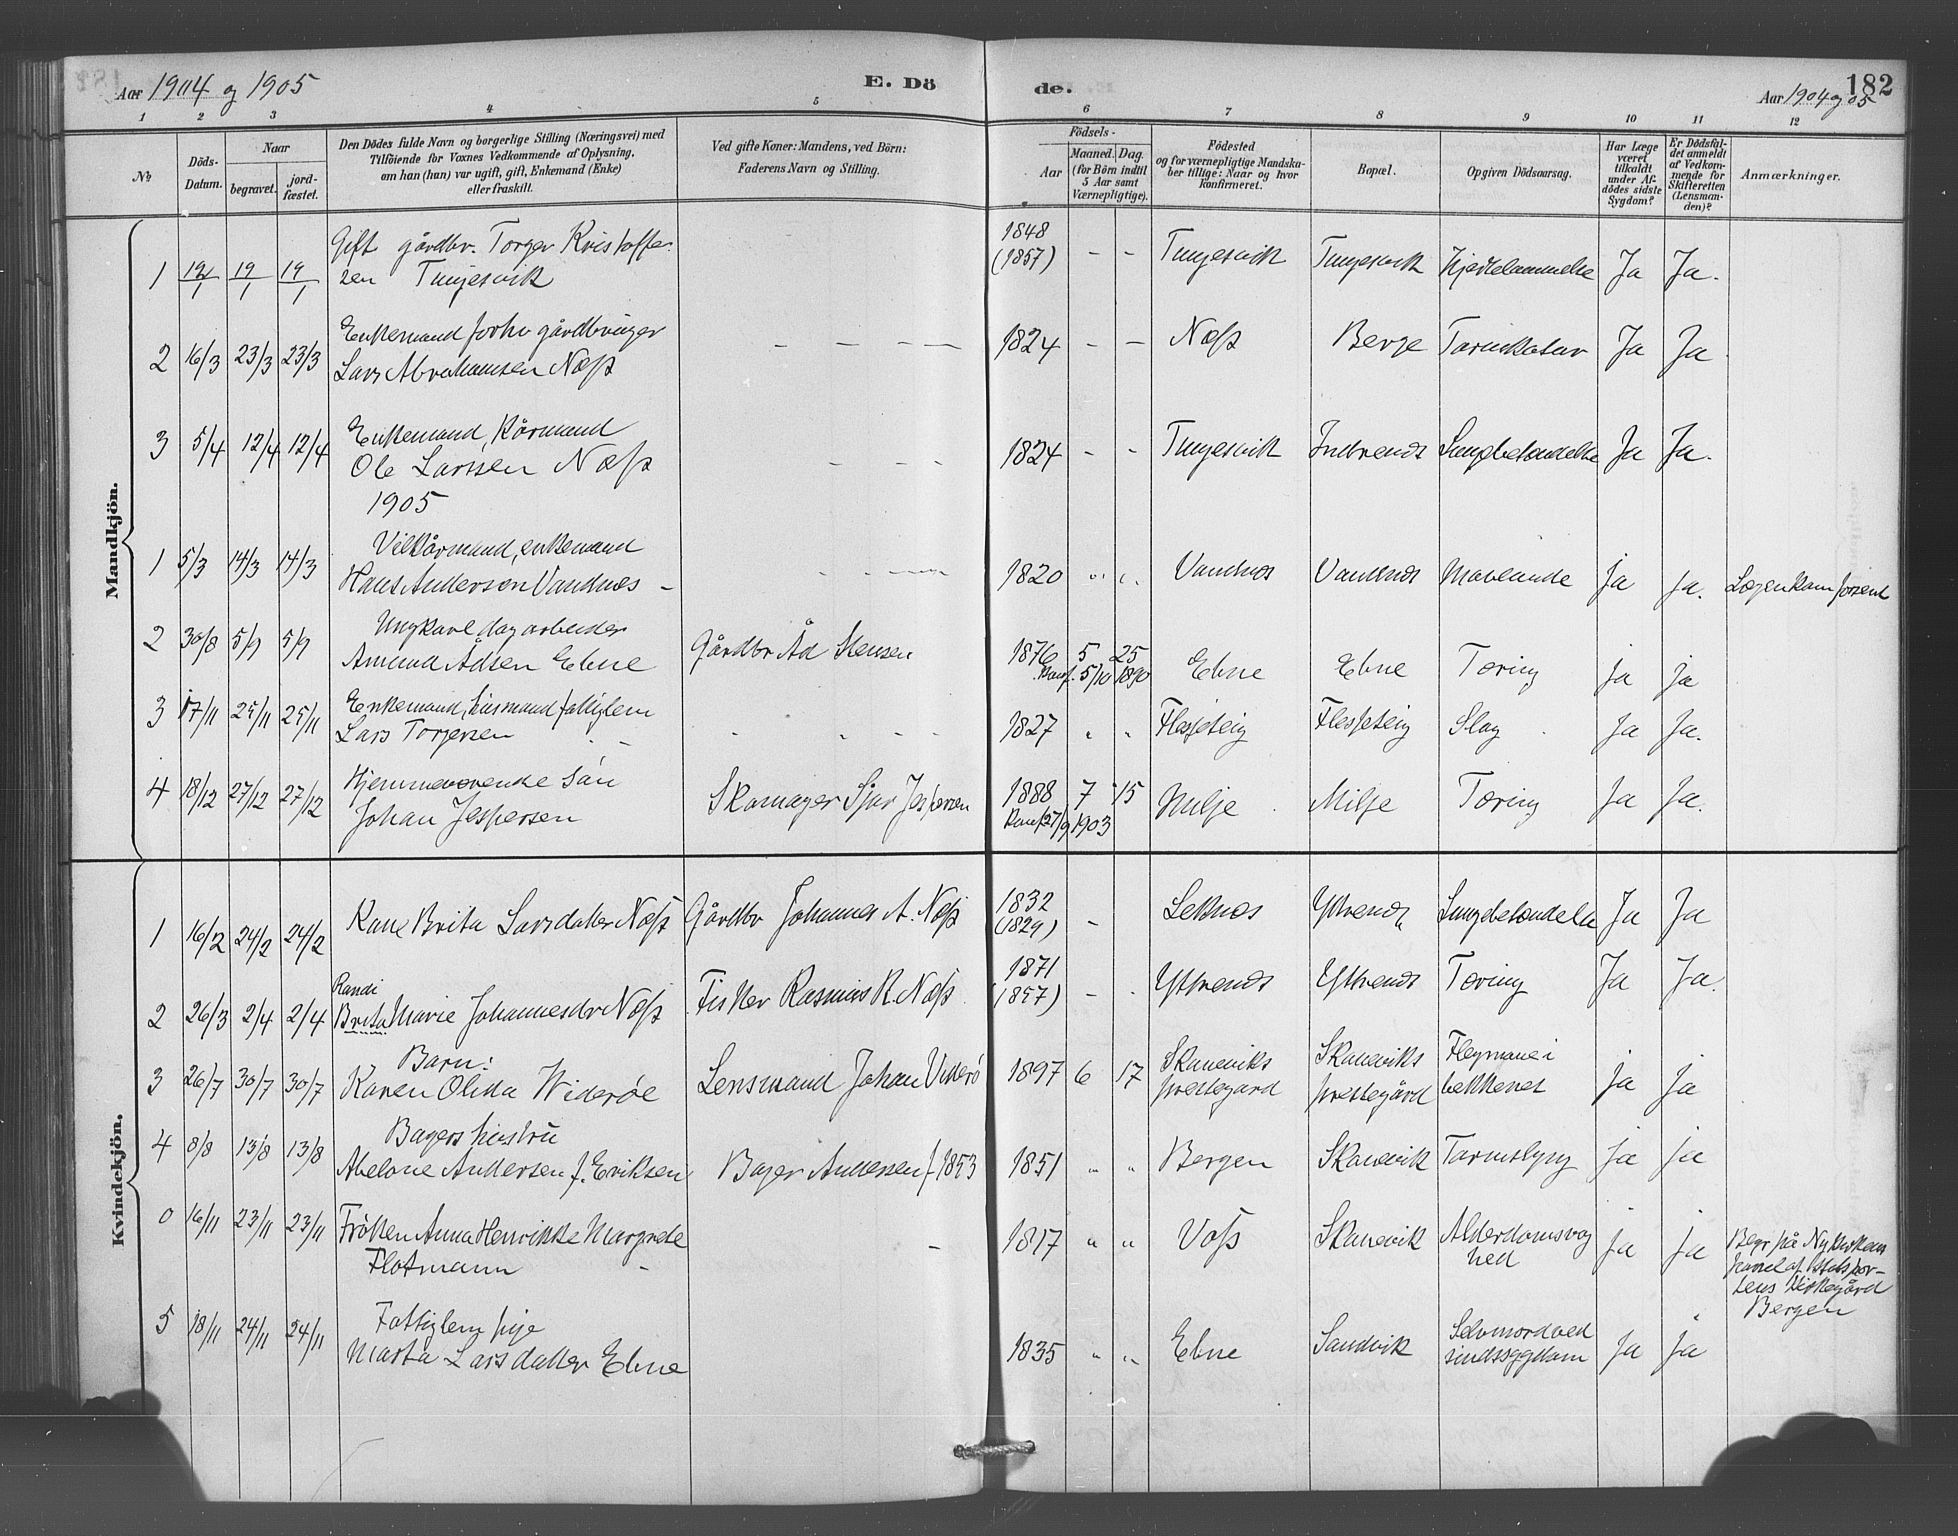 Aar 1904 og 1905
E. Dö
de.
182
Aar 1904 og 05
1 2 3 4 5 6 7 8 9 10 11 12
No
Döds-Datum.
Naar
begravet.
jord-fæstet.
Den Dödes fulde Navn og borgerlige Stilling (Næringsvei) med
Tilföiende for Voxnes Vedkommende af Oplysning,
om han (hun) var ugift, gift, Enkemand (Enke)
eller fraskilt.
Ved gifte Koner: Mandens, ved Börn:
Faderens Navn og Stilling.
Födsels-
Aar
Maaned. Dag.
(for Börn indtil
5 Aar samt
Værnepligtige).
Födested
og for værnepligtige Mandska-
ber tillige: Naar og hvor
konfirmeret.
Bopæl.
Opgiven Dödsaarsag.
Har Læge
været
tilkaldt
under Af-
dödes sidste
Sygdom?
Er Dödsfal-
det anmeldt
af Vedkom-
mende for
Skifteretten
(Lensman-
den)?
Anmærkninger.
Mandkjön.
Gift gårdbr. Torger Kristoffer-
1 12/1 19/1 19/1 sen Tungesvik 1848 (1857) - - Tungesvik Tungesvik Hjertelammelse Ja Ja.
Enkemand forhv gårdbruger
2 16/3 23/3 23/3 Lars Abrahamsen Næss - - - - 1824 - - Næss Berge Tarmkatar Ja Ja
3 5/4 12/4 12/4 Enkemand, Kårmand
Ole Larssen Næss - - - 1824 - - Tungesvik Indrenæs Lungebetændelse Ja Ja.
1905
Vilkårmand, enkemand
1 5/3 14/3 14/3 Hans Andersen Vandnæs - 1820 " " Vandnæs Vandnæs Maveonde Ja Ja. Lægen kom forsent
Ungkarl dagarbeider
2 30/8 5/9 5/9 Amund Ådsen Ebne Gårdbr Åd Stensen 1876 5 25 Ebne Ebne Tæring ja ja
konf. 5/10 1890
3 17/11 25/11 25/11 Enkemand, husmand fattiglem
Lars Torgersen 1827 " " Flesjeteig Flesjeteig Slag Ja Ja.
4 18/12 27/12 27/12 Hjemmeværende sön
Johan Jespersen Skomager Sjur Jespersen 1888 7 15 Milje Milje Tæring Ja Ja.
Konf 27/9 1903
Kvindekjön.
1 16/2 24/2 24/2 Kone Brita Larsdatter Næss Gårdbr Johannes A. Næss 1832 (1829) - Leknæs Ytrenæs Lungebetændelse Ja Ja
Randi
2 26/3 2/4 2/4 Brita Marie Johannesdr Næss Fisker Rasmus R. Næss 1871 (1857) - Ytrenæs Ytrenæs Tæring Ja Ja.
Barn:
3 26/7 30/7 30/7 Karen Olida Wideröe Lensmand Johan Viderö 1897 6 17 Skaneviks prestegard Skaneviks prestegård bekkenet ja ja
Bagers hustru
4 8/8 13/8 13/8 Abelone Andersen f. Eriksen Bager Andersen f. 1853 1851 " " Bergen Skanevik Tarmslyng ja ja
0 16/11 23/11 23/11 Fröken Anna Henrikke Margrete
Flotmann - - 1817 " " Voss Skanevik Alderdomssvag
hed ja ja Begr på Nykirkens
parcel af Stadspor-
tens Kirkegård
Bergen
5 18/11 24/11 24/11 Fattiglem pige
Marta Larsdatter Ebne 1835 " " Ebne Sandvik Selvmord ved
sindssygdom Ja Ja